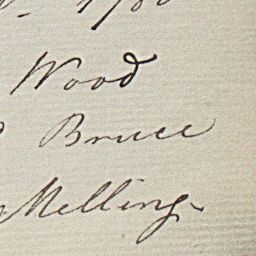 Wood
Bruce
Melling